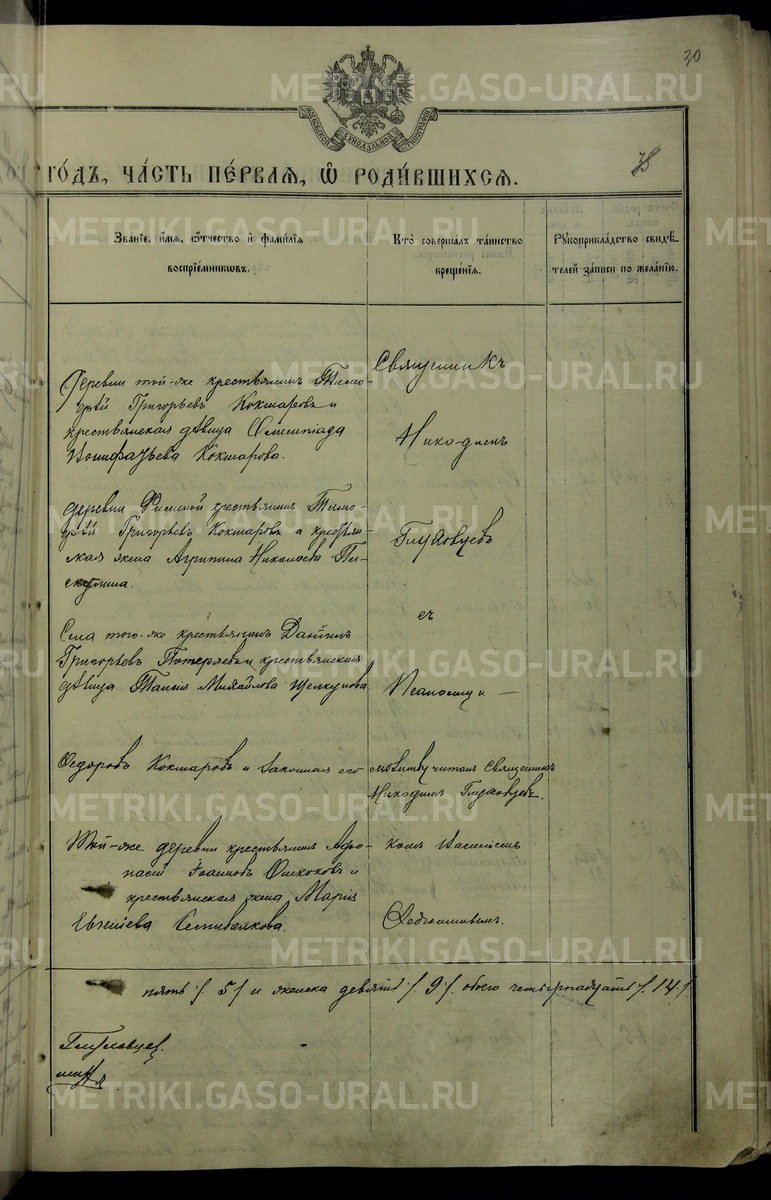 30
38
МОСКОВСКОЙ СУНОДАЛЬНОЙ ТИПОГРАФІИ
го́дъ, ча́сть пе́рвая, ѡ҆ роди́вшихся.
Зва́нїе, и҆́мя, ѻ҆́тчество и҆ фами́лїя
воспрїе́мникѡвъ.
Кто̀ соверша́лъ та́инство
креще́нїя.
Рꙋкоприкла́дство свидѣ́-
телей за́писи по жела́нїю.
Деревни той-же крестьянинъ Тимо-
ѳей Григорьевъ Кокшаровъ и
крестьянская дѣвица Олимпіада
Вонифатьева Кокшарова.
Священникъ
Никодимъ
деревни крестьянинъ Тимо-
ѳей Григорьевъ Кокшаровъ и крестьян-
ская жена Агрипина Николаева Пи-
скунина.
Глуховцевъ
Села того-же крестьянинъ Даніилъ
Григорьевъ Потеряевъ и крестьянская
дѣвица Таисія Михайлова Щелкунова
съ
Псаломщи-
Ѳедоровъ Кокшаровъ и законная его
молитву читалъ Священникъ
Никодимъ Глуховцевъ.
Той-же деревни крестьянинъ Афо-
насій Іоанновъ и
крестьянская жена Марія
Евгеніева
комъ Василіемъ
пять /. 5 / и женска девять /. 9 /. обоего четырнадцать /. 14. /
Глуховцев.
METRIKI.GASO-URAL.RU